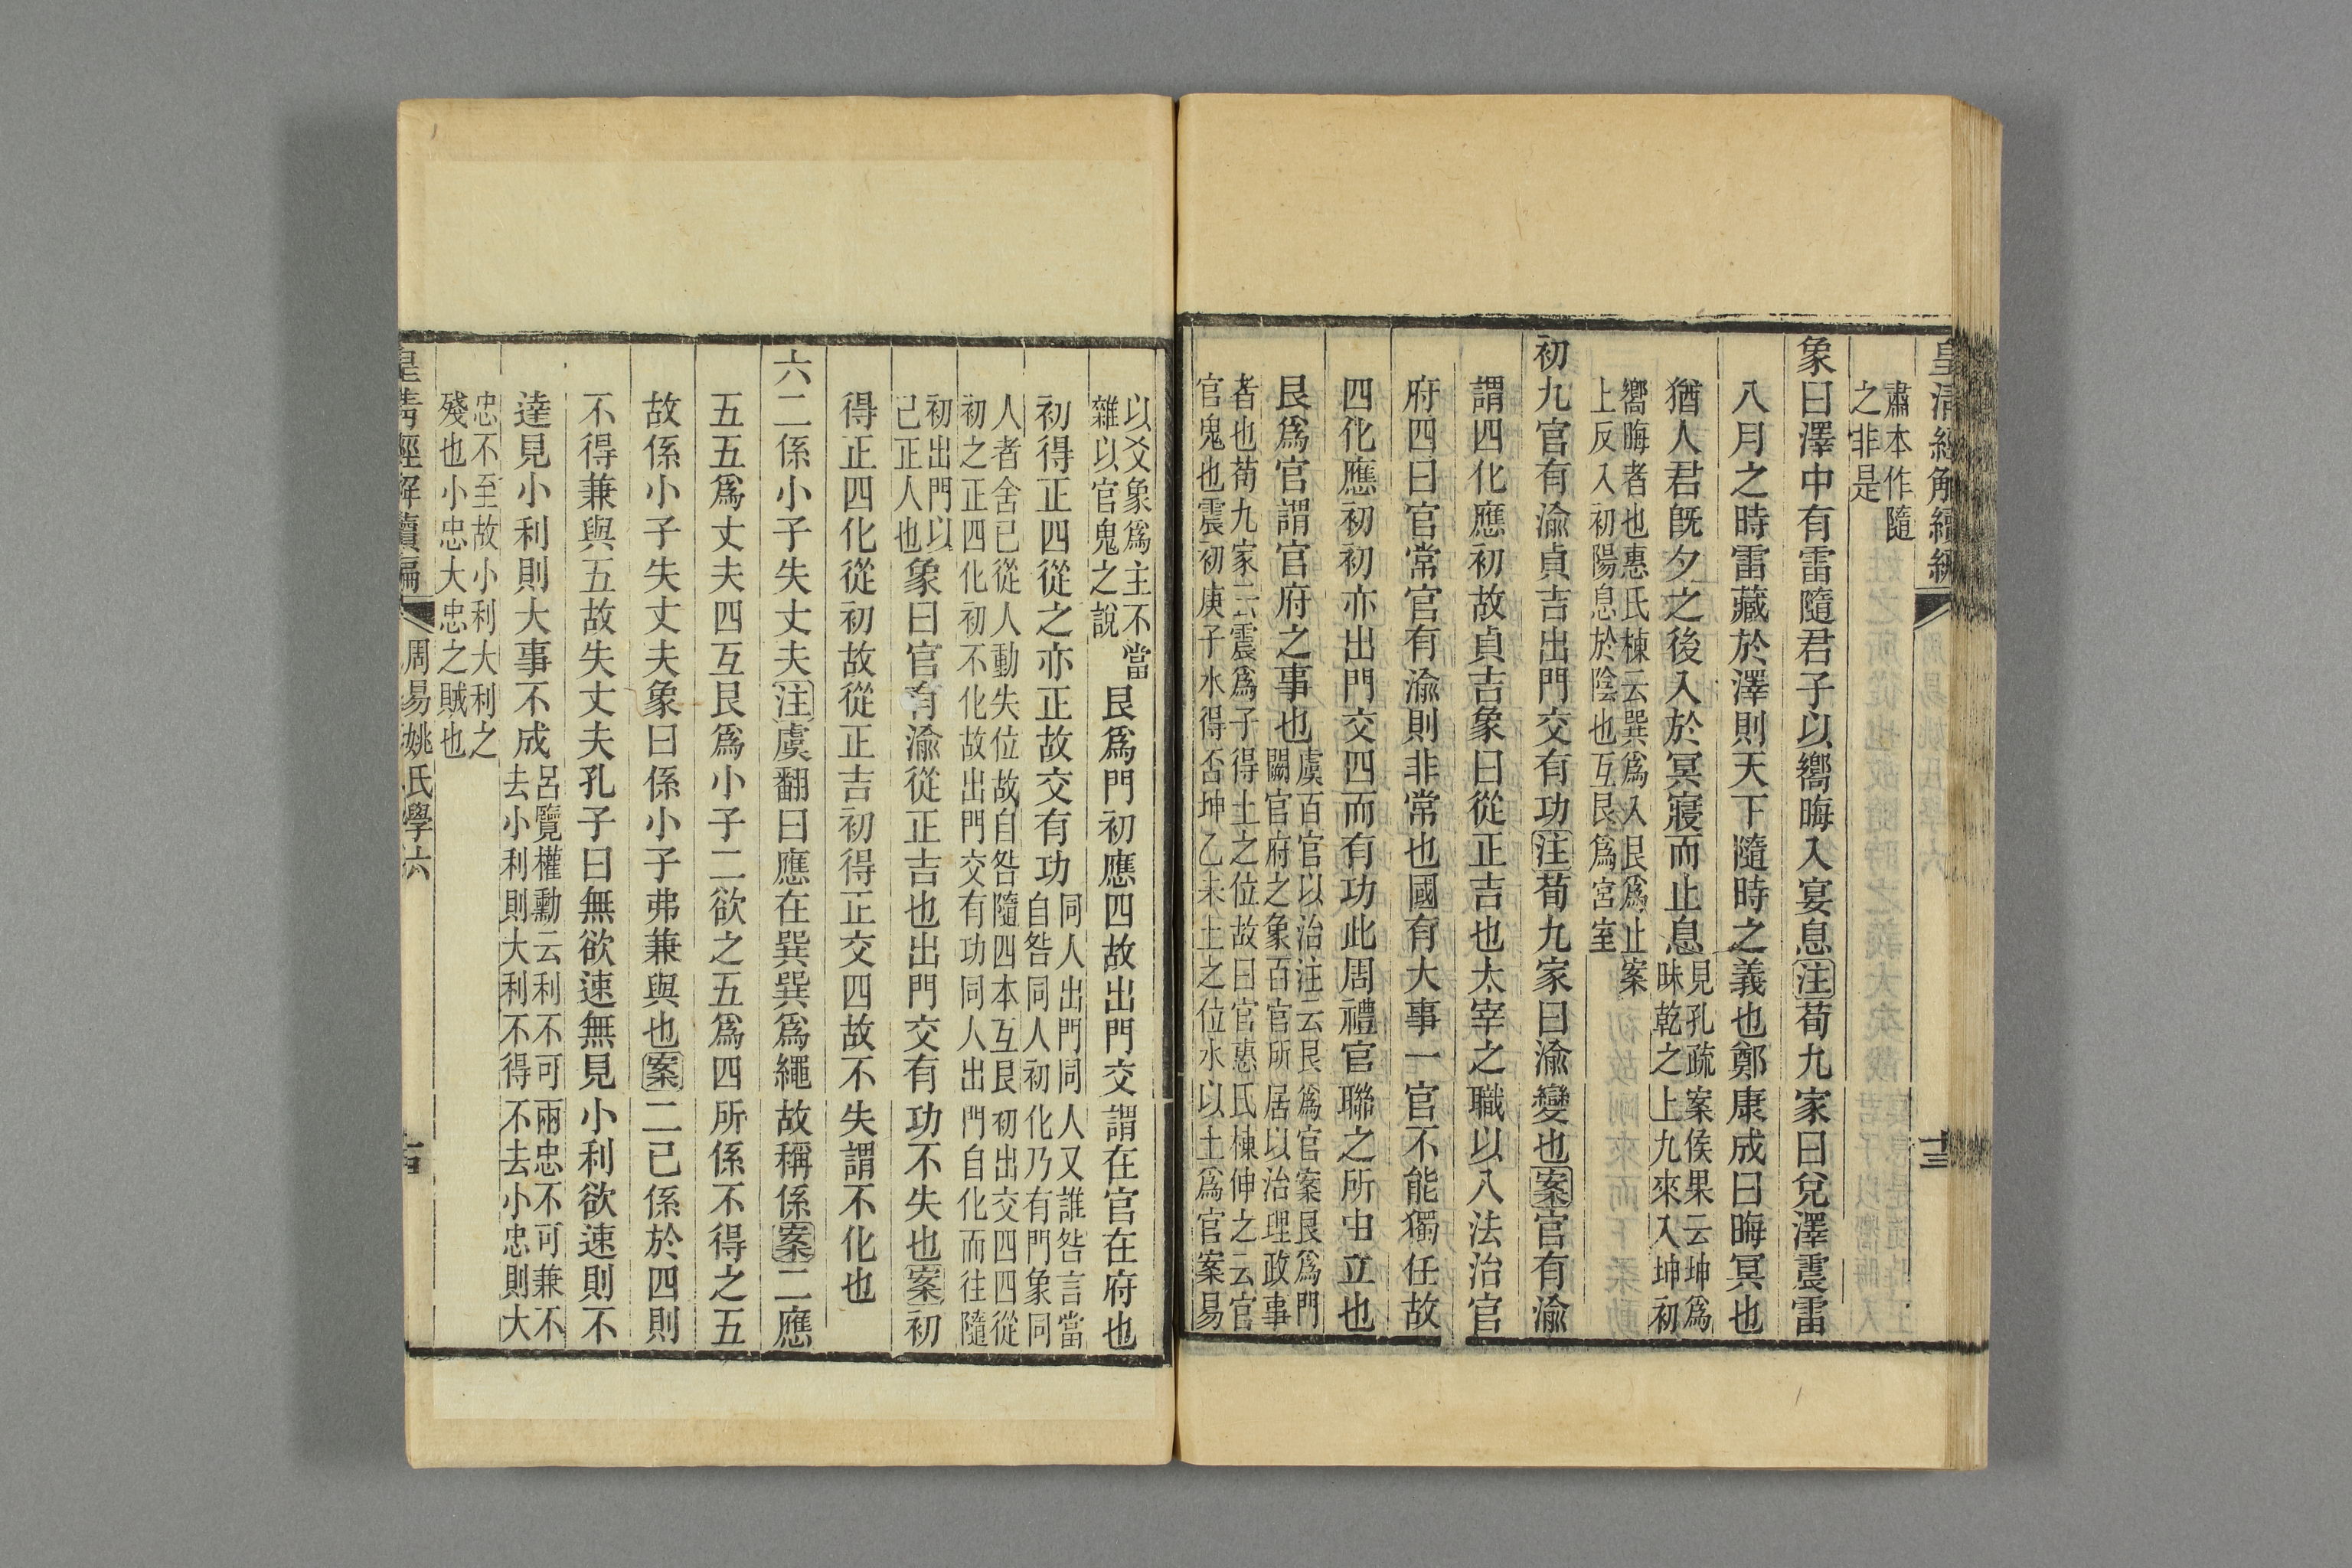 皇清經解續編
肅本作隨
之非是
象曰澤中有雷隨君子以嚮晦入宴息注荀九家曰兌澤震雷
八月之時雷藏於澤則天下隨時之義也鄭康成曰晦冥也
猶人君旣夕之後入於冥寢而止息見孔疏案侯果云坤爲
昧乾之上九來入坤初
嚮晦者也惠氏棟云巽爲入艮爲止案
上反入初陽息於陰也互艮爲宮室
初九官有渝貞吉出門交有功注荀九家曰渝變也案官有渝
謂四化應初故貞吉象曰從正吉也太宰之職以八法治官
府四曰官常官有渝則非常也國有大事一官不能獨任故
四化應初初亦出門交四而有功此周禮官聯之所由立也
艮爲官謂官府之事也虞百官以治注云艮爲官案艮爲門
闕官府之象百官所居以治理政事
者也荀九家云震爲子得土之位故曰官惠氏棟伸之云官
官鬼也震初庚子水得否坤乙未土之位水以土爲官案易
十三
以爻象爲主不當
雜以官鬼之說艮爲門初應四故出門交謂在官在府也
初得正四從之亦正故交有功同人出門同人又誰咎言當
自咎同人初化乃有門象同
人者舍已從人動失位故自咎隨四本互艮初出交四四從
初之正四化初不化故出門交有功同人出門自化而往隨
初出門以
己正人也象曰官有渝從正吉也出門交有功不失也案初
得正四化從初故從正吉初得正交四故不失謂不化也
六二係小子失丈夫注虞翻曰應在巽巽爲繩故稱係案二應
五五爲丈夫四互艮爲小子二欲之五爲四所係不得之五
故係小子失丈夫象曰係小子弗兼與也案二已係於四則
不得兼與五故失丈夫孔子曰無欲速無見小利欲速則不
達見小利則大事不成呂覽權勳云利不可兩忠不可兼不
去小利則大利不得不去小忠則大
忠不至故小利大利之
殘也小忠大忠之賊也
皇清經解續編
周易姚氏學六
十四